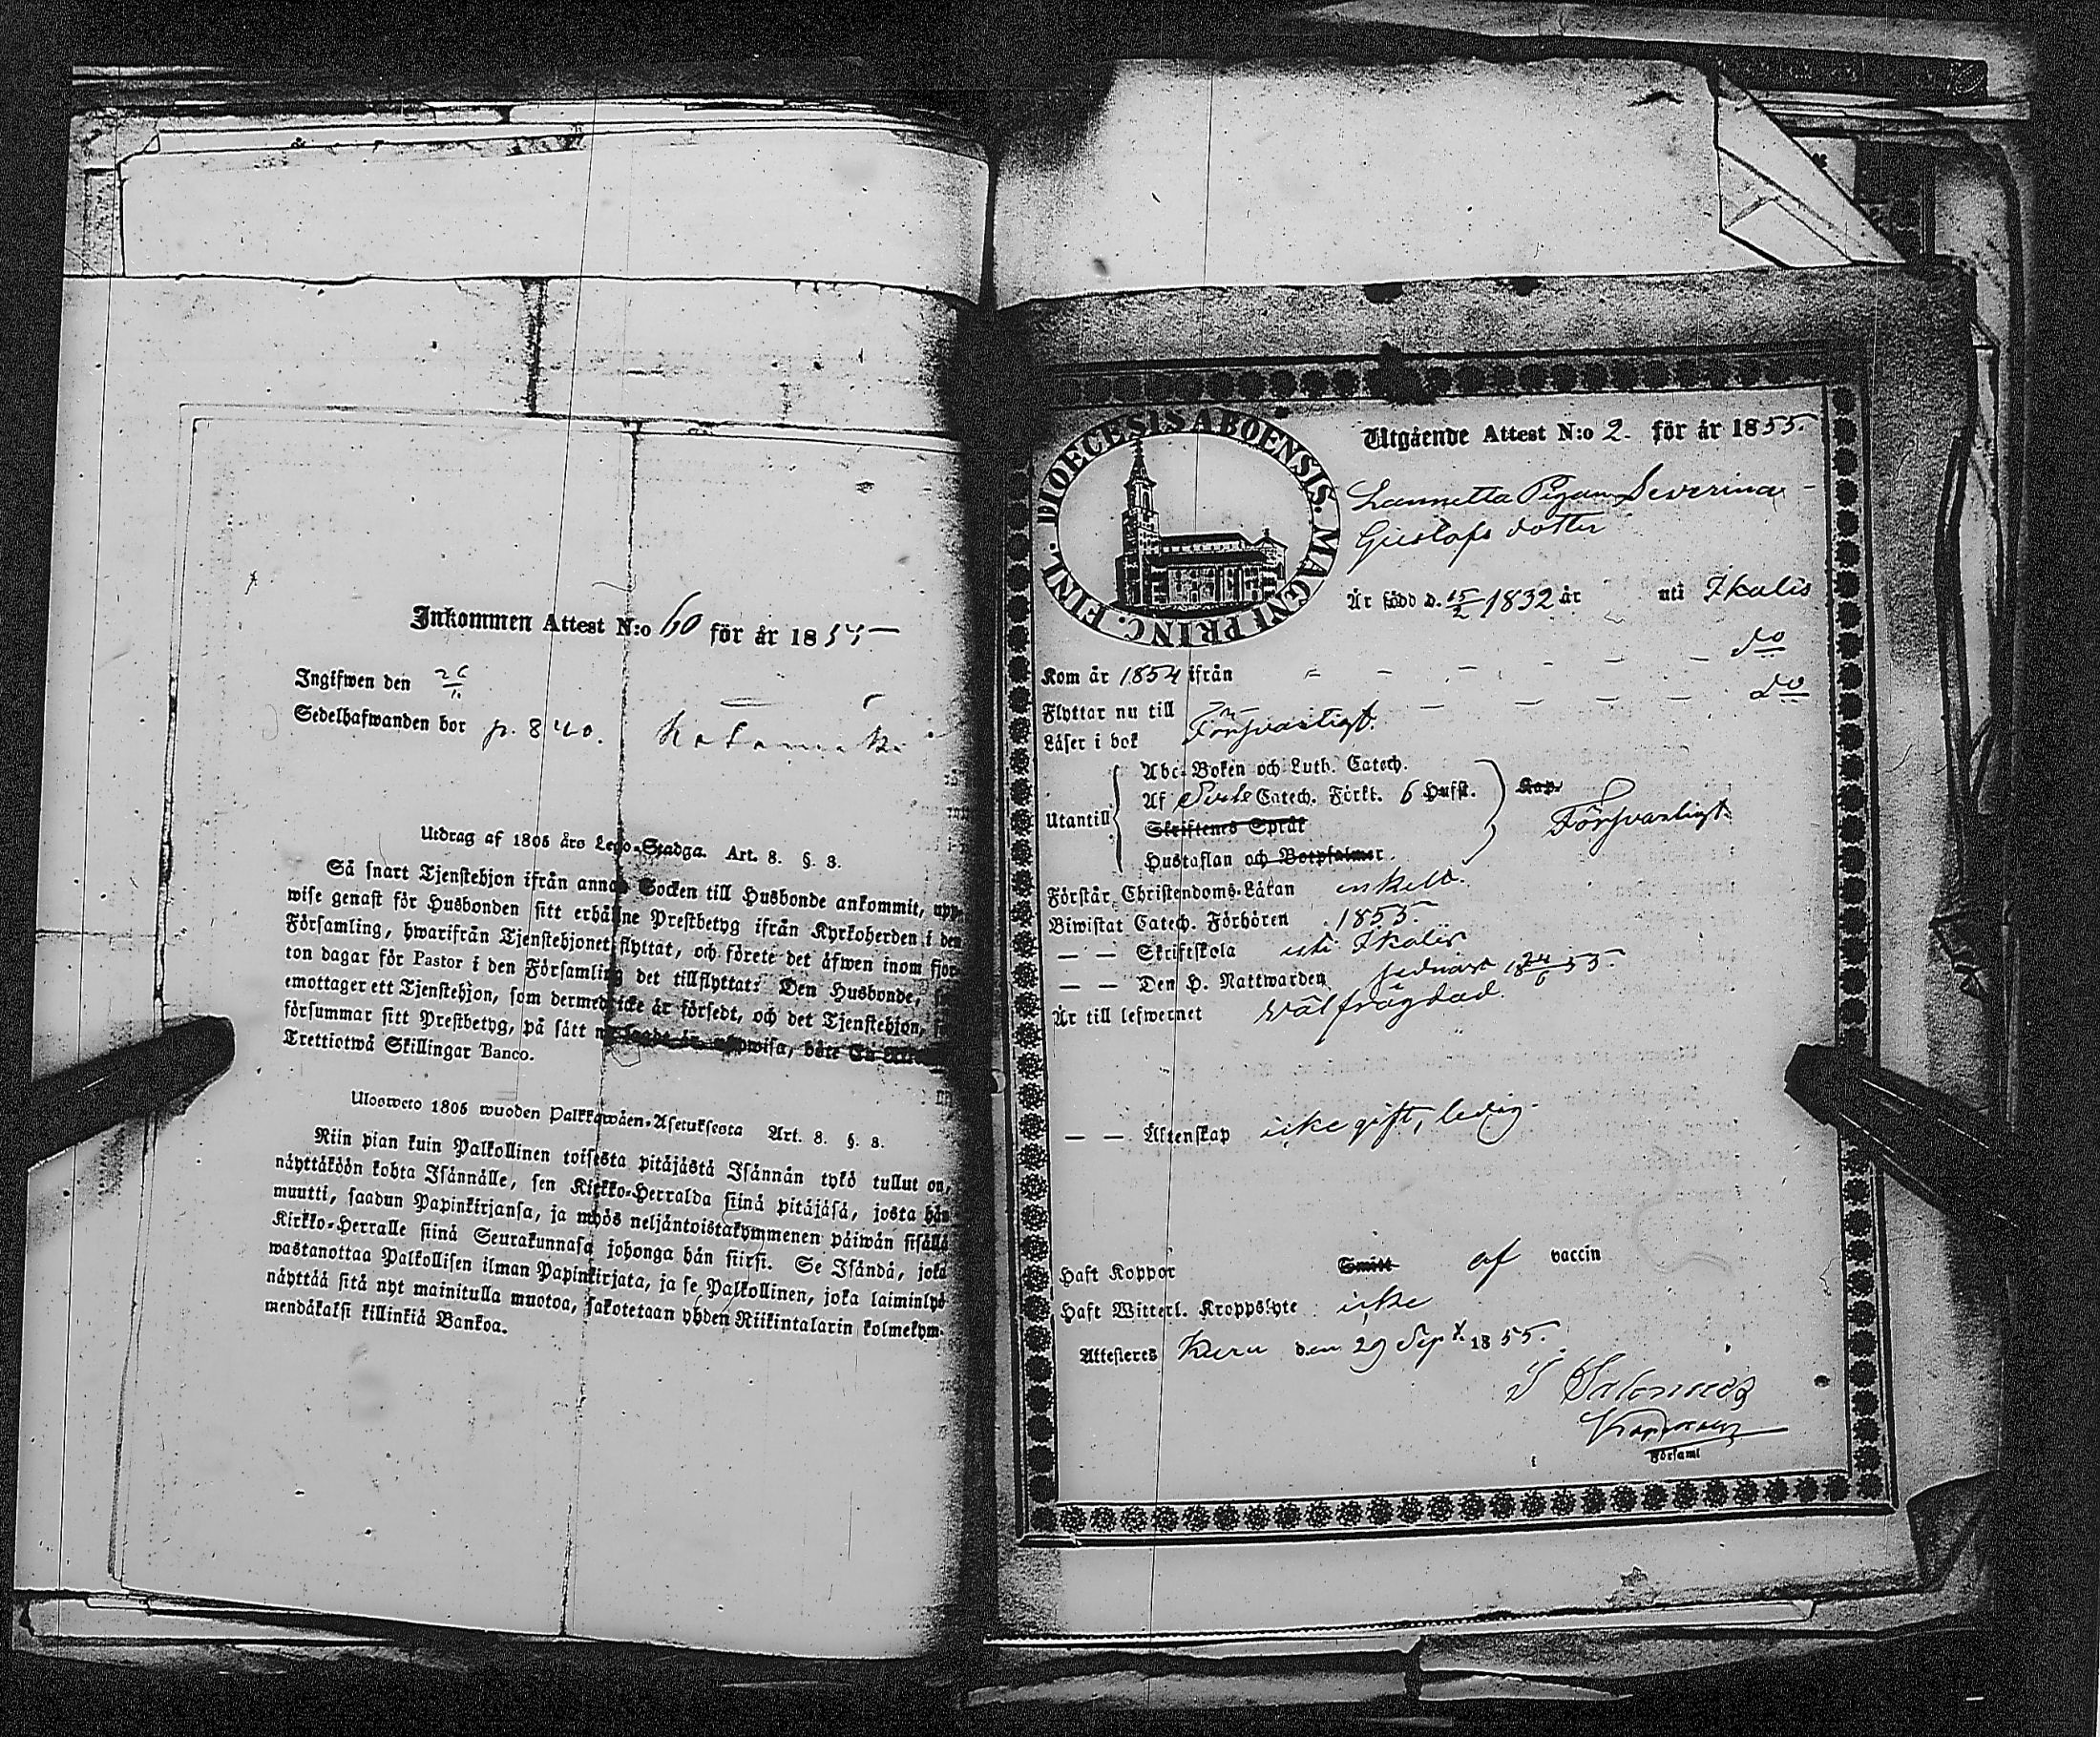 Inkommen Attest N:o 60 för år 1855
Ingifwen den 26/11
Sedelhafwanden bor p. 840.
Utdrag af 1805 års Lego-Stadga. Art. 8. §. 8.
Så snart Tjenstehjon ifrån annan Socken till Husbonde ankommit, upp-
wise genast för Husbonden sitt erhållne Prestbetyg ifrån Kyrkoherden i den
Församling, hwarifrån Tjenstehjonet flyttat, och förete det äfwen inom fjor-
ton dagar för Pastor i den Församling det tillflyttat. Den Husbonde,
emottager ett Tjenstehjon, som dermed icke är försedt, och det Tjenstehjon,
försummar sitt Prestbetyg, på sätt nu sagdt är, uppwisa, böte En
Trettiotwå Skillingar Banco.
Ulosweto 1805 wuoden Palkkawäen-Asetuksesta Art. 8. §. 8.
Niin pian kuin Palkollinen toisesta pitäjästä Isännän tykö tullut on,
näyttäköön kohta Isännälle, sen Kirkko-Herralda siinä pitäjäsä, josta hän
muutti, saadun Papinkirjansa, ja myös neljäntoistakymmenen päiwän sisällä
Kirkko-Herralle siinä Seurakunnasa johonga hän siirsi. Se Isändä, joka
wastanottaa Palkollisen ilman Papinkirjata, ja se Palkollinen, joka laiminlyö
näyttää sitä nyt mainitulla muotoa, sakotetaan yhden Riikintalarin kolmekym-
mendäkaksi killinkiä Bankoa.
DIOECESIS ABOENSIS. MAGNI PRINC. FINL.
Utgående Attest N:o 2. för år 1855.
Pigan Severina
Gustafs dotter
Är född d. 15/2 1832 år uti Ikalis
Kom år 1854 ifrån – – – – – do
Flyttar nu till – – – – do
Läser i bok Försvarligt.
Utantill
Abc-Boken och Luth. Catech.
Af Catech. Förkl. 6 Hufst.
Skriftenes Språk
Hustaflan och Botpsalmer.
Försvarligt.
Förstår Christendoms-Läran enkelt.
Biwistat Catech. Förhören 1855.
— — Skriftskola uti Ikalis
— — Den H. Nattwarden sednast 18 24/6 55
Är till lefwernet Wälfrägdad.
— — Äktenskap icke gift, ledig.
Haft Koppor Smitt af vaccin
Haft Witterl. Kroppslyte icke
Attesteras Kuru den 29 Sept. 1855.
Församl